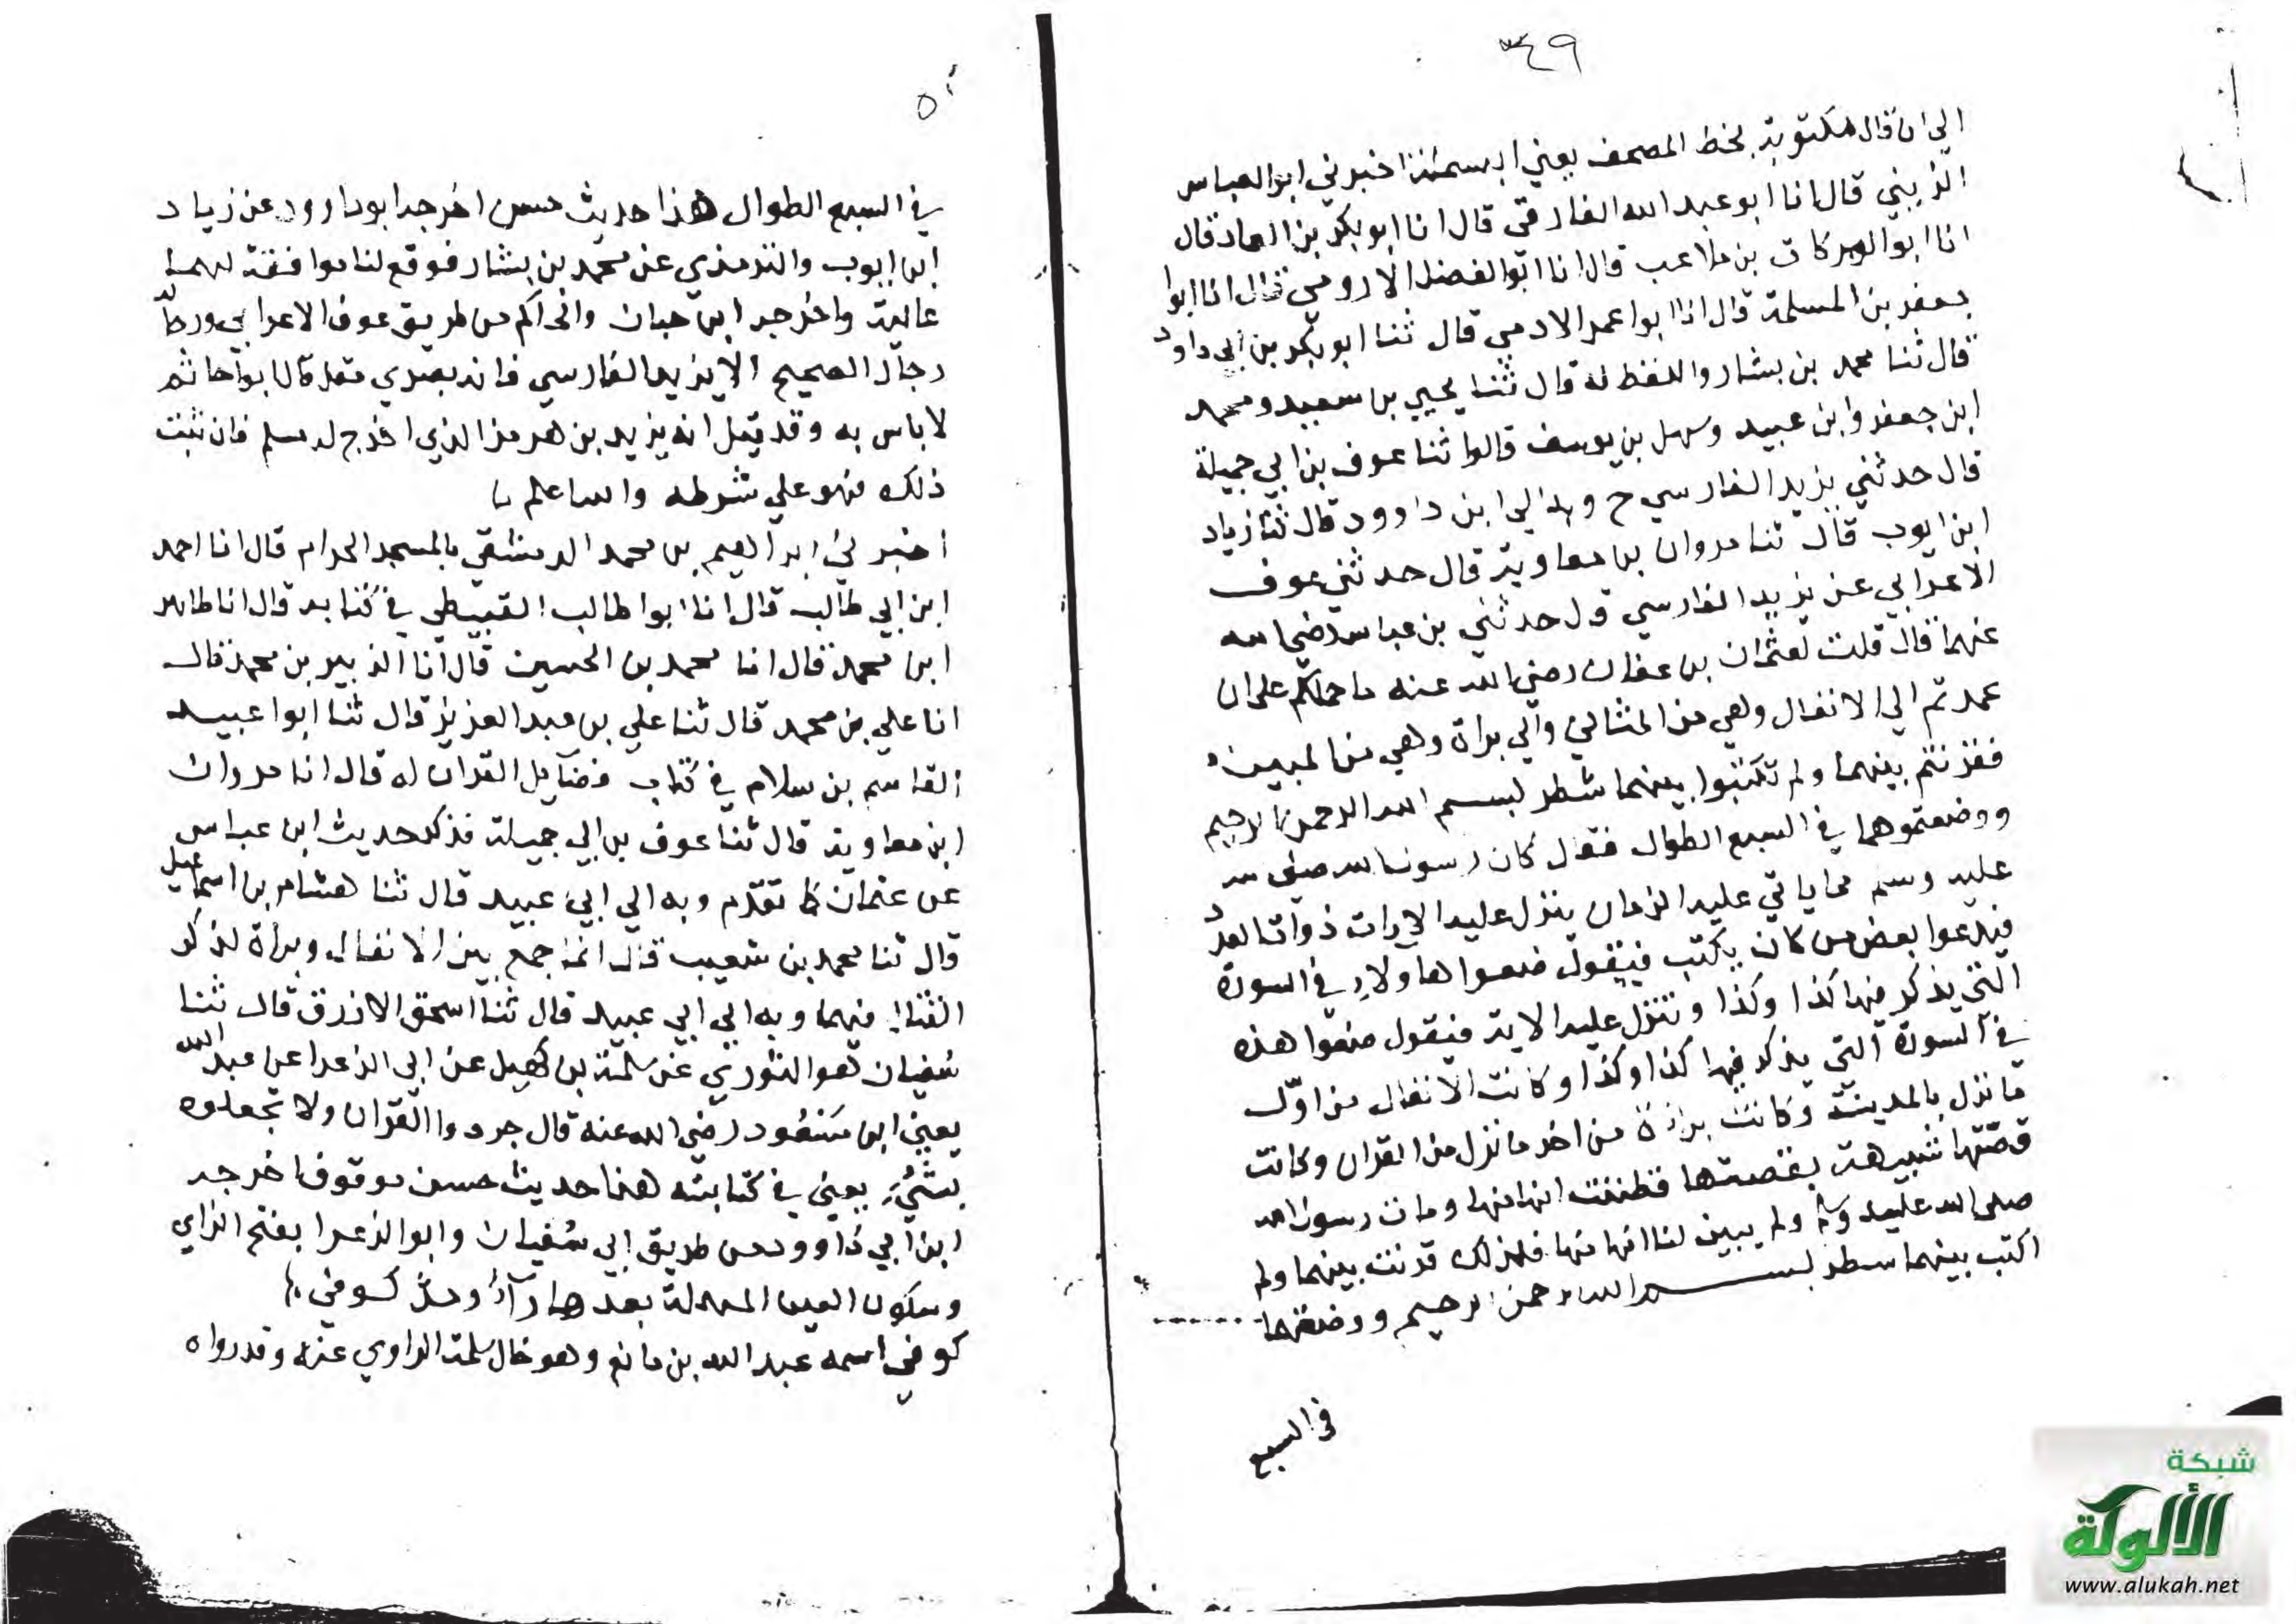 ٣٤٩
الي ان قال مكتوبة بخط المصحف يعني البسملة اخبرني ابو العباس
الزينبي قال انا ابو عبد الله الفارقي قال انا ابو بكر بن العماد قال
انا ابو البركات بن ملاعب قال انا ابو الفضل الارومي قال انا ابوا
جعفر بن المسلمة قال انا ابوا عمر الادمي قال ثنا ابو بكر بن ابي داود
قال ثنا محمد بن بشار واللفظ له قال ثنا يحيي بن سعيد ومحمد
ابن جعفر وابن عبيد وسهل بن يوسف قالوا ثنا عوف بن ابي جميلة
قال حدثني يزيد الفارسي ح وبه الي ابن داوود قال ثنا زياد
ابن ايوب قال ثنا مروان بن معاوية قال حدثني عوف
الاعرابي عن يزيد الفارسي قال حدثني بن عباس رضي الله
عنهما قال قلت لعثمان بن عفان رضي الله عنه ما حملكم علي ان
عمدتم الي الانفال وهي من المثاني والي براة وهي من المبين
فقرنتم بينهما ولم تكتبوا بينهما شطر بسم الله الرحمن الرحيم
ووضعتموهما في السبع الطوال فقال كان رسول الله صلي الله
عليه وسلم مما ياتي عليه الزمان ينزل عليه الايات ذوات العدد
فيدعوا بعض من كان يكتب فيقول ضعوا هاولاء في السورة
التي يذكر فيها كذا وكذا وتنزل عليه الاية فيقول ضعوا هذه
في السورة التي يذكر فيها كذا وكذا وكانت الانفال من اول
ما نزل بالمدينة وكانت براة من اخر ما نزل من القران وكانت
قصتها شبيهة بقصتها فظننت انها منها ومات رسول الله
صلي الله عليه ولم يبين لنا انها منها فلذلك قرنت بينهما ولم
اكتب بينهما سطر بسم الله الرحمن الرحيم ووضعتها
في السبع
٥٠
في السبع الطوال هذا حديث حسن اخرجه ابو داوود عن زياد
ابن ايوب والترمذي عن محمد بن بشار فوقع لنا موافقة لهما
عالية واخرجه ابن حبان والحاكم من طريق عوف الاعرابي ورجاله
رجال الصحيح الا يزيد الفارسي فانه بصري مقل قال ابو حاتم
لا باس به وقد قيل انه يزيد بن هرمز الذي اخرج له مسلم فان ثبت
ذلك فهو علي شرطه والله اعلم
اخبرني ابراهيم بن محمد الدمشقي بالمسجد الحرام قال انا احمد
ابن ابي طالب قال انا ابوا طالب القبيطي في كتابه قال انا طاهر
ابن محمد قال انا محمد بن الحسين قال انا الزبير بن محمد قال
انا علي بن محمد قال ثنا علي بن عبد العزيز قال ثنا ابوا عبيد
القاسم بن سلام في كتاب فضايل القران له قال انا مروان
ابن معاوية قال ثنا عوف بن ابي جميلة فذكر حديث ابن عباس
عن عثمان كما تقدم وبه الي ابي عبيد قال ثنا هشام بن اسماعيل
قال ثنا محمد بن شعيب قال انما جمع بين الانفال وبراة لذكر
القتال فيهما وبه الي ابي عبيد قال ثنا اسحق الازرق قال ثنا
سفيان هو الثوري عن سلمة بن كهيل عن ابي الزعرا عن عبد الله
يعني ابن مسعود رضي الله عنه قال جردوا القران ولا تجعلوه
بشيء يعني في كتابته هذا حديث حسن موقوف اخرجه
ابن ابي داوود من طريق ابي سفيان وابو الزعرا بفتح الزاي
وسكون العين المهملة بعدها رآء ومد كوفي
كوفي اسمه عبد الله بن هانم وهو خال سلمة الراوي عنه وقد رواه
شبكة
الألوكة
www.alukah.net